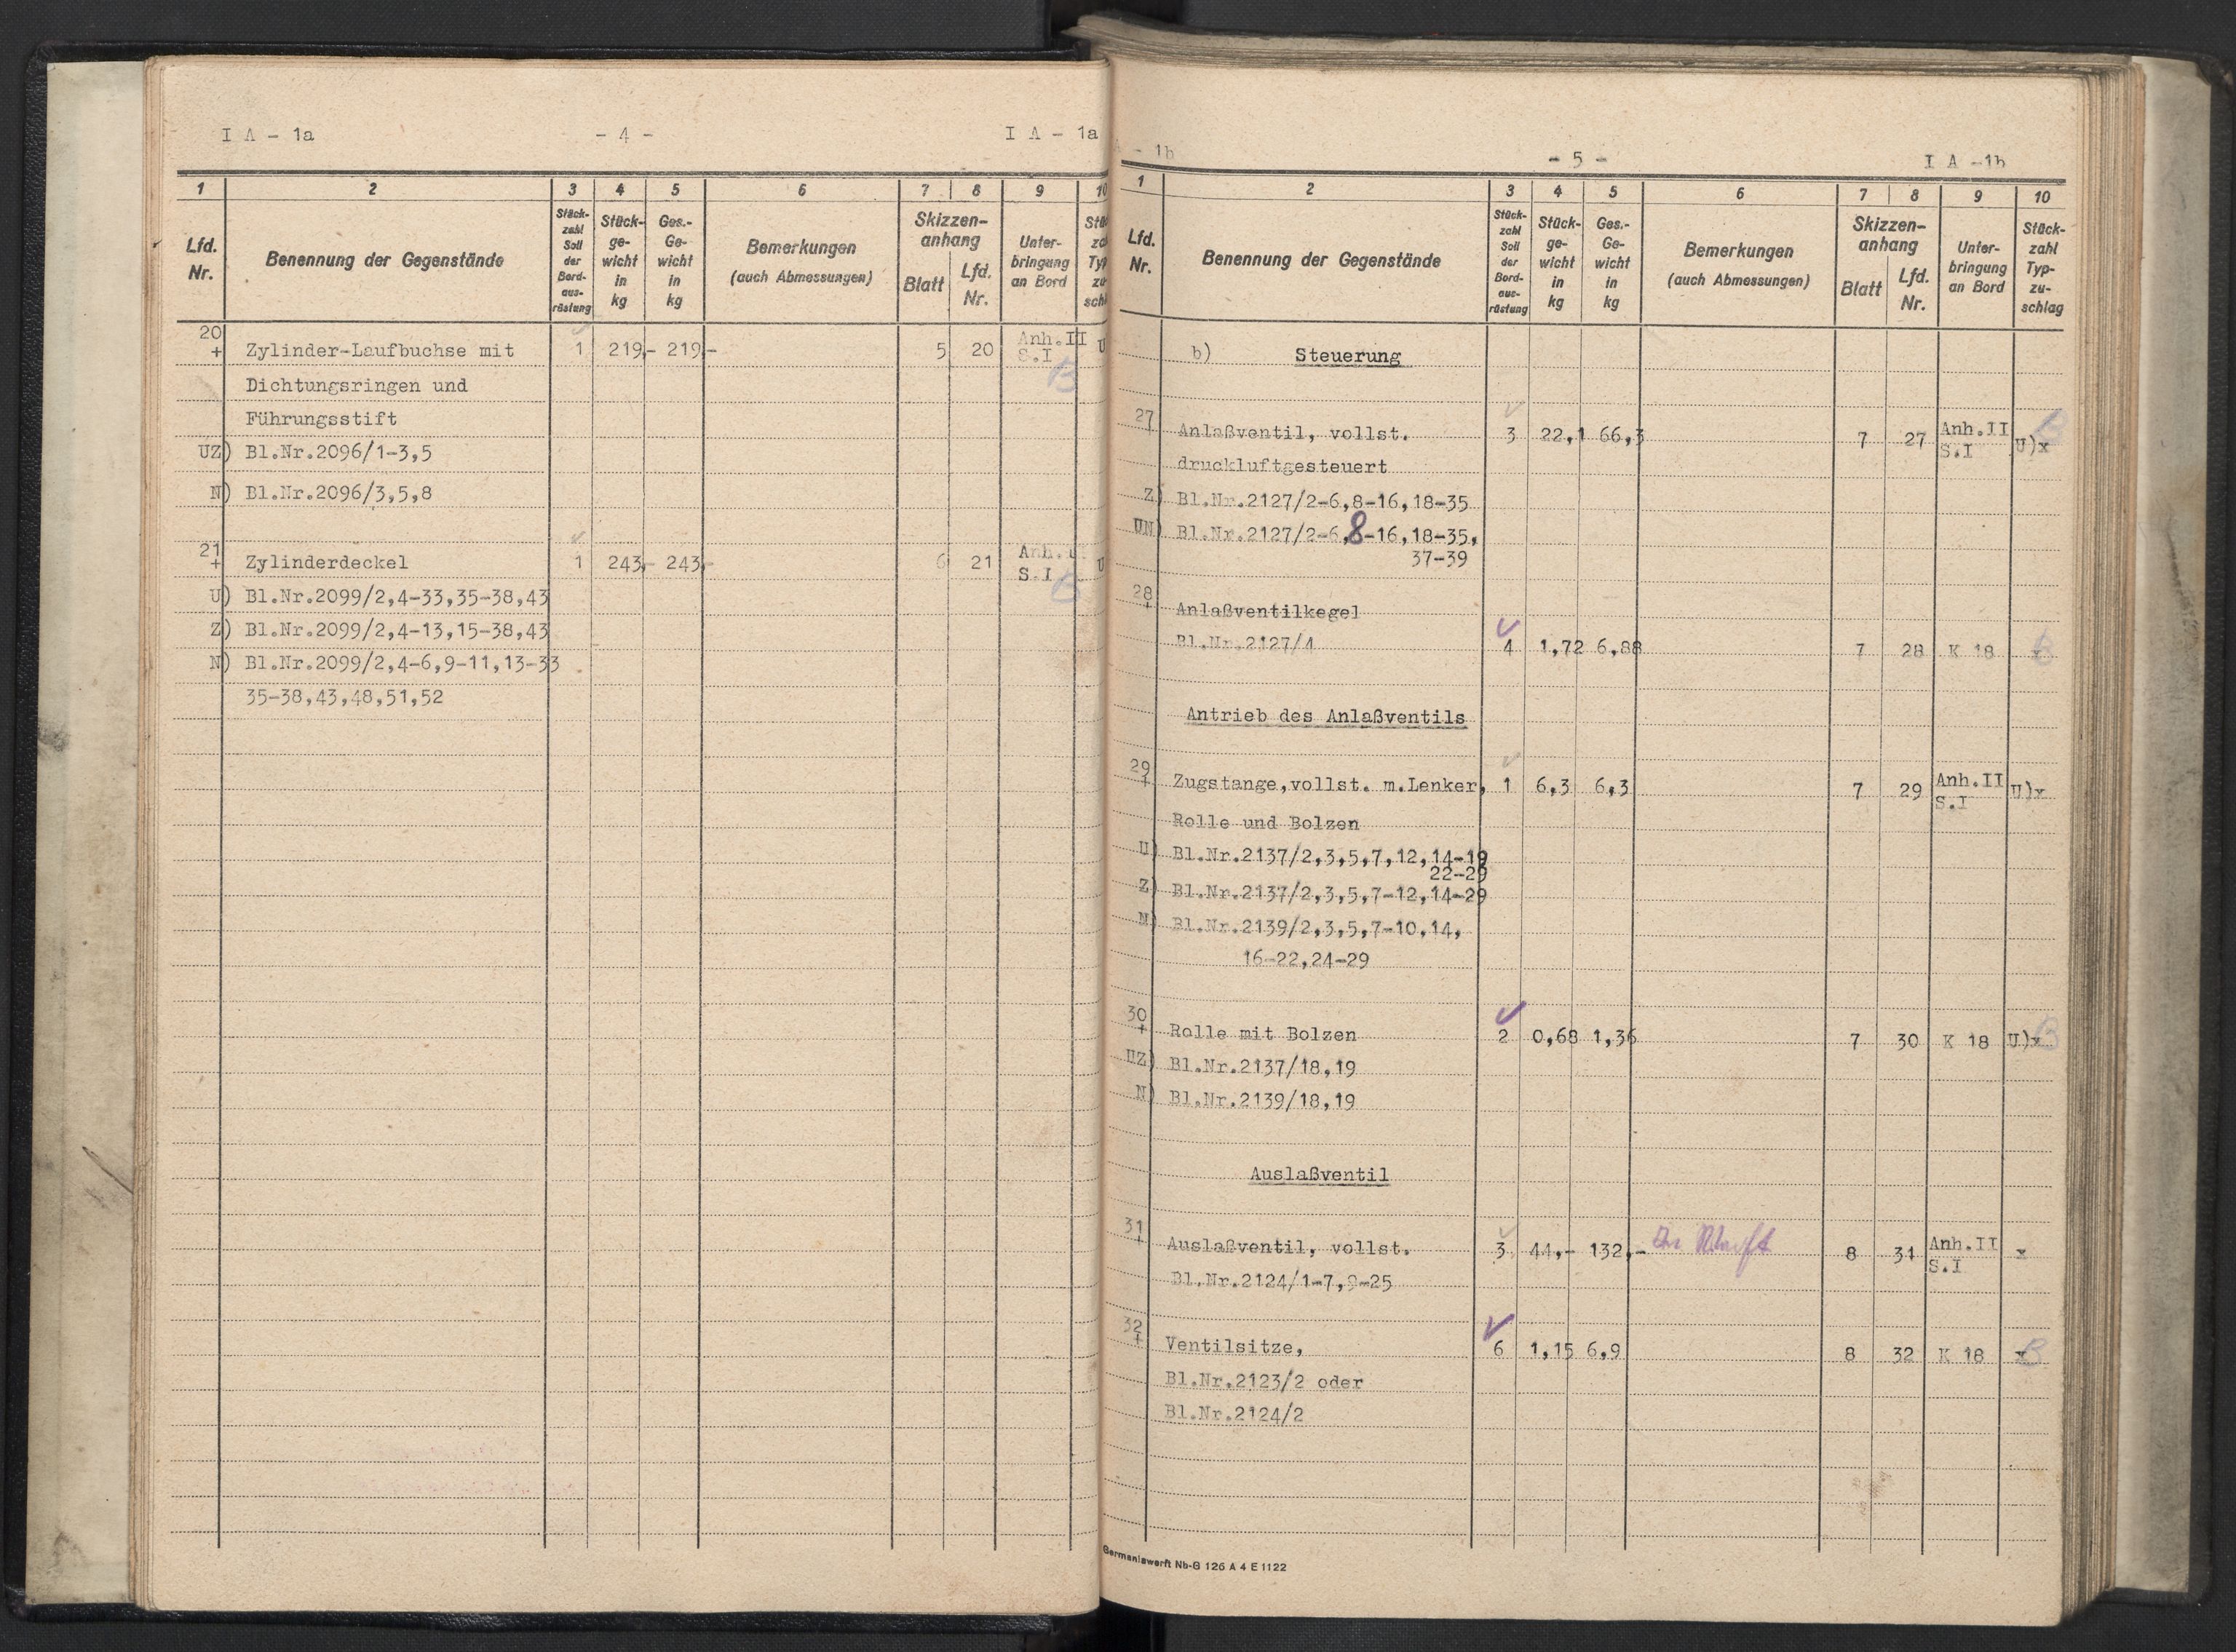 I A - 1a - 4 - I A - 1a
1 2 3 4 5 6 7 8 9 10
Lfd. Nr. Benennung der Gegenstände Stück-zahl Soll der Bord-aus-rüstung Stück-ge-wicht in kg Ges.-Ge-wicht in kg Bemerkungen (auch Abmessungen) Skizzen-anhang Blatt Lfd. Nr. Unter-bringung an Bord
20
+ Zylinder-Laufbuchse mit 1 219,- 219,- 5 20 Anh.II S.I U
Dichtungsringen und B
Führungsstift
UZ) Bl.Nr.2096/1-3,5
N) Bl.Nr.2096/3,5,8
21
+ Zylinderdeckel 1 243,- 243,- 6 21 Anh. S.I U
U) Bl.Nr.2099/2,4-33,35-38,43 B
Z) Bl.Nr.2099/2,4-13,15-38,43
N) Bl.Nr.2099/2,4-6,9-11,13-33
35-38,43,48,51,52
- 1b - 5 - I A -1b
1 2 3 4 5 6 7 8 9 10
Lfd. Nr. Benennung der Gegenstände Stück-zahl Soll der Bord-aus-rüstung Stück-ge-wicht in kg Ges.-Ge-wicht in kg Bemerkungen (auch Abmessungen) Skizzen-anhang Blatt Lfd. Nr. Unter-bringung an Bord Stück-zahl Typ-zu-schlag
b) Steuerung
27
+ Anlaßventil, vollst. 3 22,1 66,3 7 27 Anh.II S.I U)x B
druckluftgesteuert
Z) Bl.Nr.2127/2-6,8-16,18-35
UN) Bl.Nr.2127/2-6,8-16,18-35,
37-39
28
+ Anlaßventilkegel
Bl.Nr.2127/4 4 1,72 6,88 7 28 K 18 x B
Antrieb des Anlaßventils
29
+ Zugstange,vollst. m.Lenker, 1 6,3 6,3 7 29 Anh.II S.I U)x
Rolle und Bolzen
U) Bl.Nr.2137/2,3,5,7,12,14-19
22-29
Z) Bl.Nr.2137/2,3,5,7-12,14-29
N) Bl.Nr.2139/2,3,5,7-10,14,
16-22,24-29
30
+ Rolle mit Bolzen 2 0,68 1,36 7 30 K 18 U)x B
UZ) Bl.Nr.2137/18,19
N) Bl.Nr.2139/18,19
Auslaßventil
31
+ Auslaßventil, vollst. 3 44,- 132,- 8 31 Anh.II S.I x
Bl.Nr.2124/1-7,9-25
32
+ Ventilsitze, 6 1,15 6,9 8 32 K 18 x B
Bl.Nr.2123/2 oder
Bl.Nr.2124/2
Germaniawerft Nb-G 126 A 4 E 1122